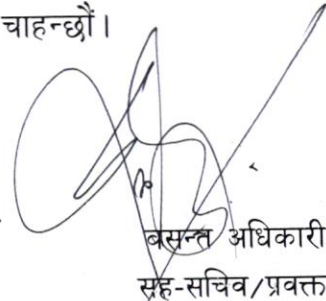 चाहन्छौं।
बसन्त अधिकारी
सह-सचिव/प्रवक्त